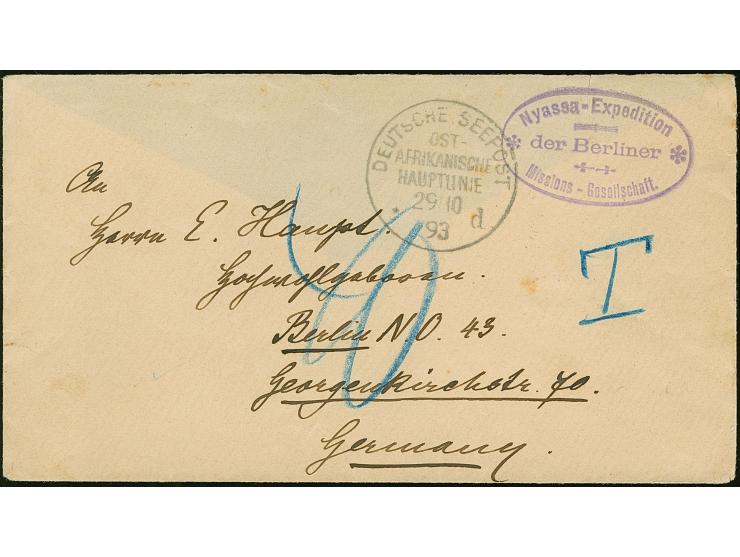 Nyassa-Expedition
der Berliner
Missions-Gesellschaft.
DEUTSCHE SEEPOST
OST-
AFRIKANISCHE
HAUPTLINIE
29/10
93 d
An
Herrn E. Haupt.
Hochwohlgeboren.
Berlin N.O. 43.
Georgenkirchstr. 70.
Germany.
T